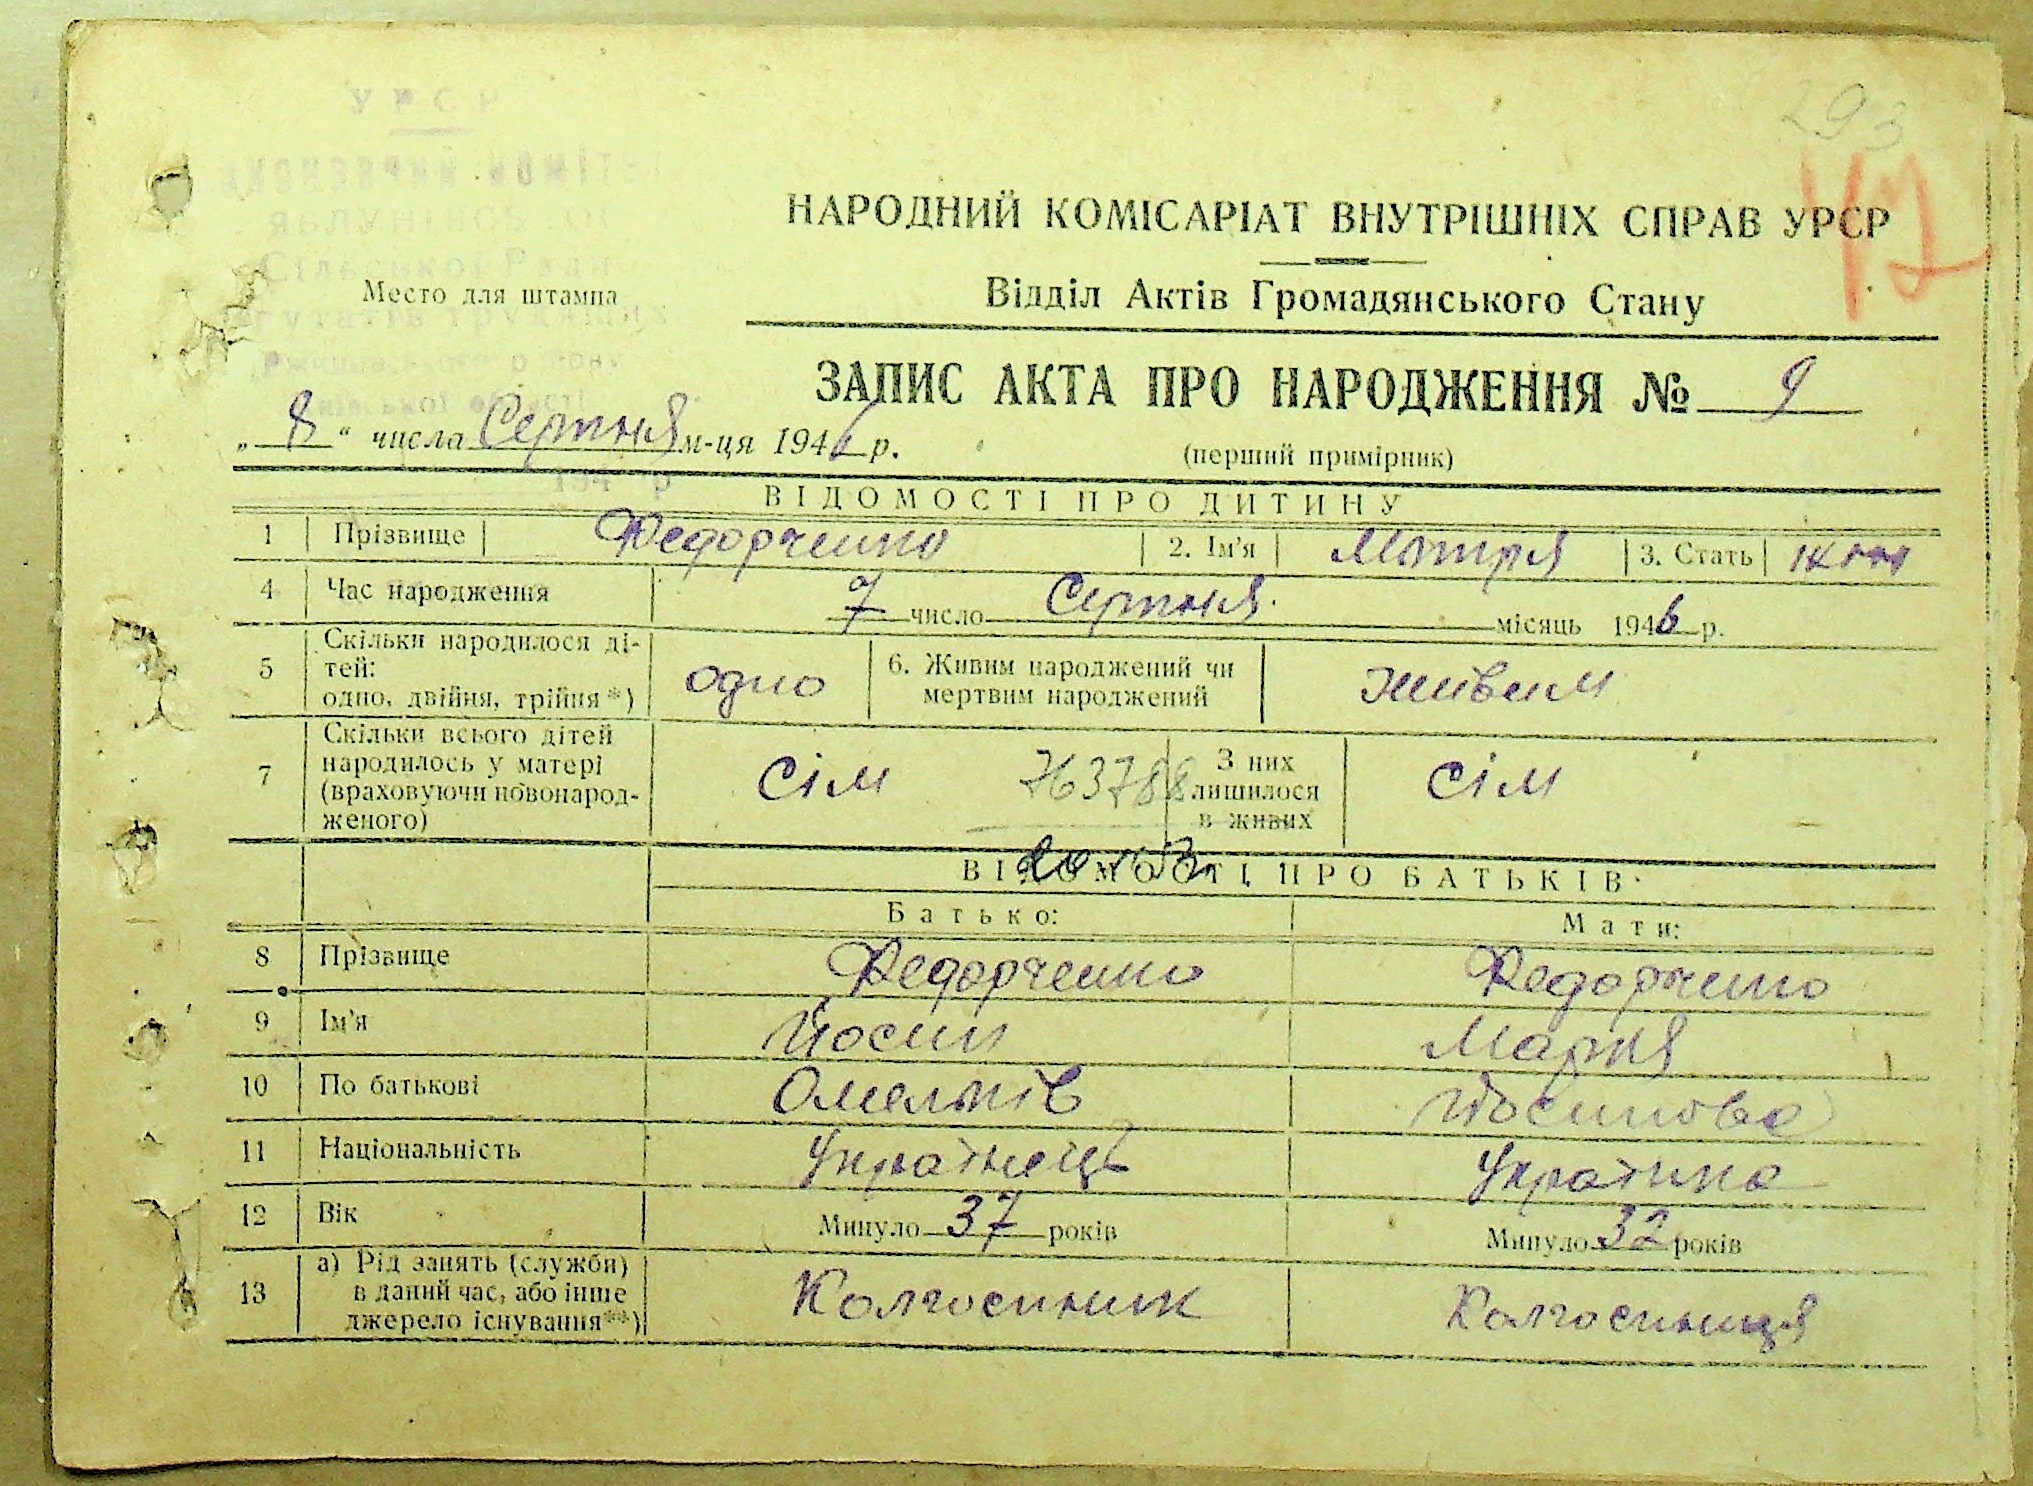 293
17
УРСР
ЯБЛУНІВСЬКОЇ
Сільської Ради
Место для штампа
НАРОДНИЙ КОМІСАРІАТ ВНУТРІШНІХ СПРАВ УРСР
Відділ Актів Громадянського Стану
ЗАПИС АКТА ПРО НАРОДЖЕННЯ № 9
„ 8 “ числа Серпня м-ця 1946 р.
(перший примірник)
194 р
ВІДОМОСТІ ПРО ДИТИНУ
1 Прізвище Федорченко 2. Ім'я Мотря 3. Стать жін
4 Час народження 7 число Серпня місяць 1946 р.
5 Скільки народилося ді-
тей:
одно, двійня, трійня*) одно 6. Живим народжений чи
мертвим народжений живим
7 Скільки всього дітей
народилось у матері
(враховуючи новонарод-
женого) сім 763788 З них
лишилося
в живих сім
ВІДОМОСТІ ПРО БАТЬКІВ
Батько: Мати:
8 Прізвище Федорченко Федорченко
9 Ім'я Йосип Марія
10 По батькові Омельків Йосипова
11 Національність Українець Українка
12 Вік Минуло 37 років Минуло 32 років
13 а) Рід занять (служби)
в даний час, або інше
джерело існування**) Колгоспник Колгоспниця